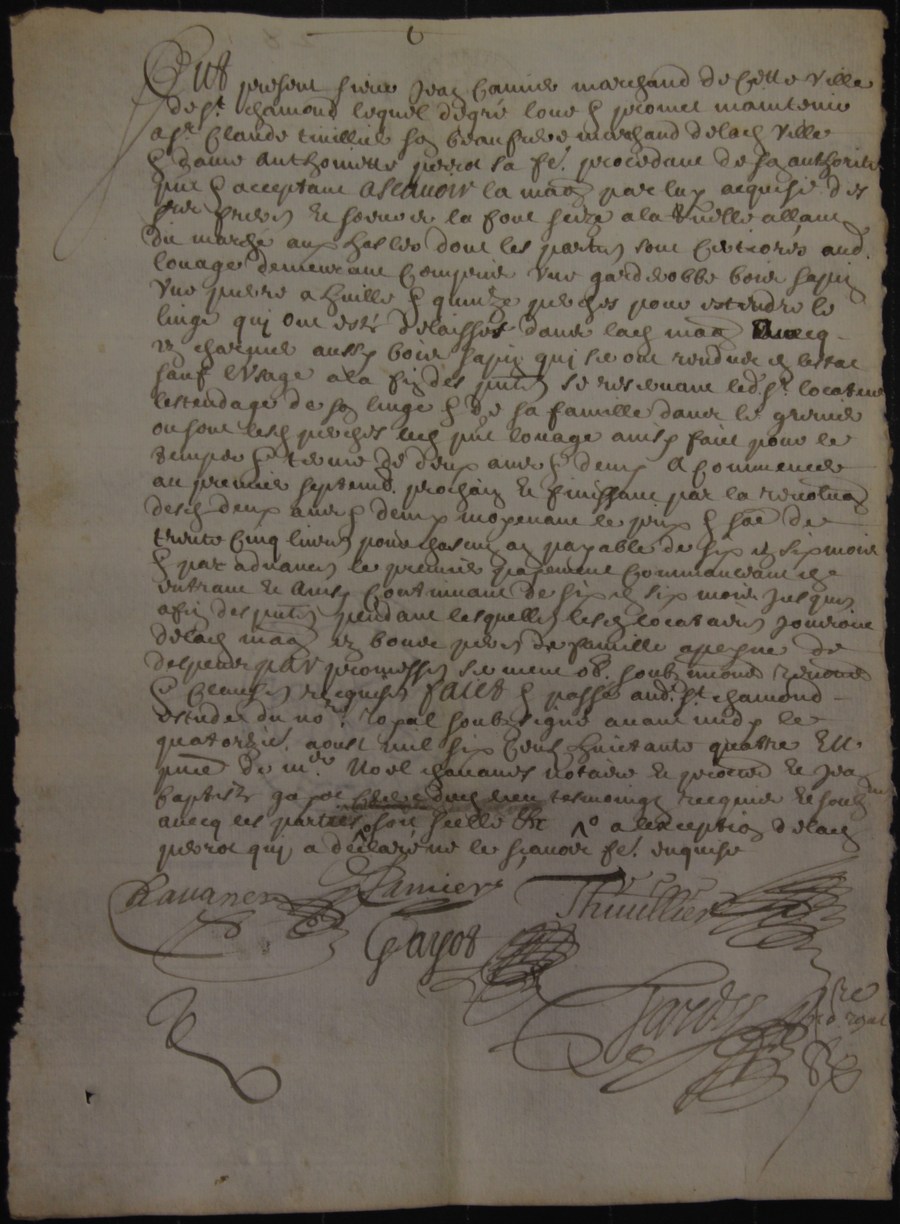 Fut present sieur Jean Camier marchand de cette ville
de st chamond lequel de gré loue & promet maintenir
a sr Claude tuillier son beaufrere marchand de lad ville
& dame Anthoinette perrot sa fe. procedant de son authorité
pnt & acceptant ascavoir la maon par luy acquise des
la font size a la ruelle allant
du marché aux halles dont les parties sont certiorés aud.
louage demeurant comprins une garderobbe bois sapin
une pierre a huille & quinze perches pour estendre le
linge qui ont estés delaisses dans lad maon avecq
aussy bois sapin qui seront rendues en estat
sauf l'usage a la fin des pntes se reservant led. sr. locateur
l'estendage de son linge & de sa famille dans le grenier
ou sont lesd perches led pnt louage ainsy faict pour le
temps & terme de deux ans & demy a commencer
au premier septemb. prochain et finissant par la revolution
desd deux ans & demy moyenant le prix & some de
trente cinq livres pour chascun an payable de six en six mois
& par advance le premier payement commencant
entrant et ainsy continuant de six en six mois jusques
a fin des pntes pendant lesquelles lesd locataires jouiront
de lad maon en bons peres de famille a peyne de
despens par promesses serment ob. soubmions renonons
& clauses requises faict & passé aud. st. chamond
estude du nore. royal soubsigné avant midy le
quatorzie. aoust mil six cents huictante quattre en
pnce de me. Noel chavanes notaire et procur et Jean
baptiste gayot tesmoingz requis et soubznes
avecq les parties soit seellé &c a l'exception de lad
perrot qui a declaré ne le scavoir fe. enquise
Chavanes Camier Thuillier
Gayot
re
royal